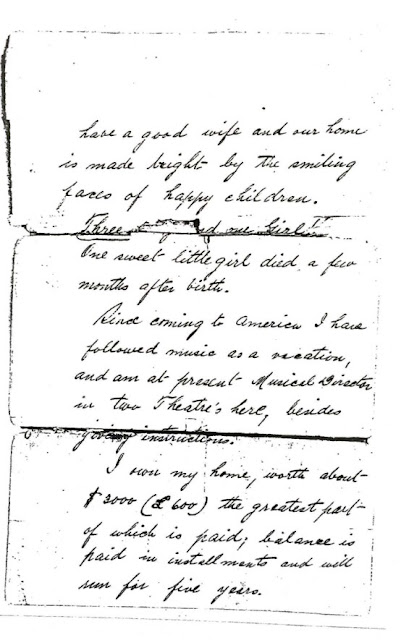 have a good wife and our home
is made bright by the smiling
faces of happy children.
Three and one Girl
One sweet little girl died a few
months after birth.
Since coming to America I have
followed music as a vocation,
and am at present Musical Director
in two Theatre's here, besides
giving instructions.
I own my home, worth about
$3000 (£600) the greatest part
of which is paid; balance is
paid in installments and will
run for five years.